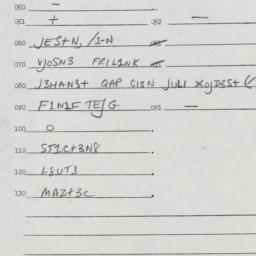 050 –
051 + 052 —
060 JESTN, /1-N
070 VJOSN3 FRIL1NK
080 J3HANS+ QAP C13N JULI XOJD3S+ (
090 F1N1F TE/G 091 —
100 0
110 ST1C+3N8
120 L8UT1
130 MAZ+3C